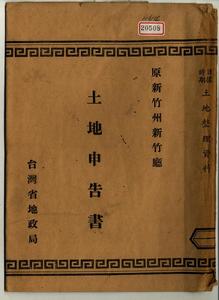 20508
日據時期
土地整理資料
原新竹州新竹廳
土地申告書
台灣省地政局